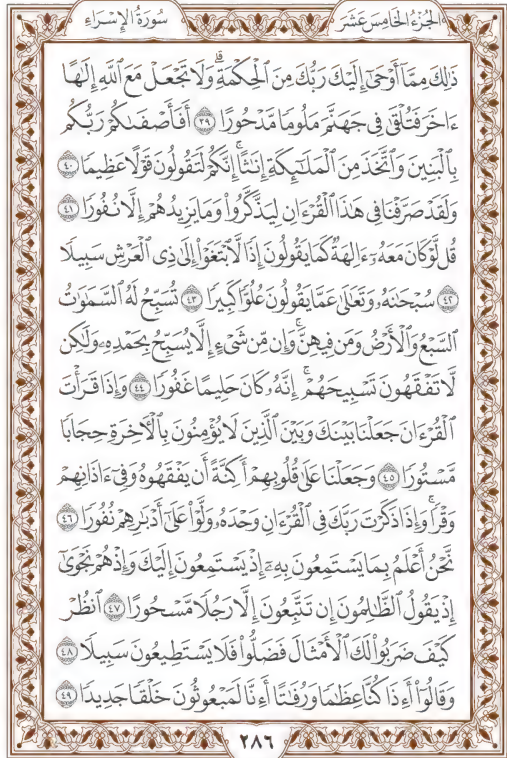 الجُزْءُ الخَامِسَ عَشَرَ
سُورَةُ الإِسْرَاءِ
ذَٰلِكَ مِمَّآ أَوْحَىٰٓ إِلَيْكَ رَبُّكَ مِنَ ٱلْحِكْمَةِۗ وَلَا تَجْعَلْ مَعَ ٱللَّهِ إِلَٰهًا
ءَاخَرَ فَتُلْقَىٰ فِى جَهَنَّمَ مَلُومًا مَّدْحُورًا ٣٩ أَفَأَصْفَىٰكُمْ رَبُّكُم
بِٱلْبَنِينَ وَٱتَّخَذَ مِنَ ٱلْمَلَٰٓئِكَةِ إِنَٰثًاۚ إِنَّكُمْ لَتَقُولُونَ قَوْلًا عَظِيمًا ٤٠
وَلَقَدْ صَرَّفْنَا فِى هَٰذَا ٱلْقُرْءَانِ لِيَذَّكَّرُوا۟ وَمَا يَزِيدُهُمْ إِلَّا نُفُورًا ٤١
قُل لَّوْ كَانَ مَعَهُۥٓ ءَالِهَةٌ كَمَا يَقُولُونَ إِذًا لَّٱبْتَغَوْا۟ إِلَىٰ ذِى ٱلْعَرْشِ سَبِيلًا
٤٢ سُبْحَٰنَهُۥ وَتَعَٰلَىٰ عَمَّا يَقُولُونَ عُلُوًّا كَبِيرًا ٤٣ تُسَبِّحُ لَهُ ٱلسَّمَٰوَٰتُ
ٱلسَّبْعُ وَٱلْأَرْضُ وَمَن فِيهِنَّۚ وَإِن مِّن شَىْءٍ إِلَّا يُسَبِّحُ بِحَمْدِهِۦ وَلَٰكِن
لَّا تَفْقَهُونَ تَسْبِيحَهُمْۗ إِنَّهُۥ كَانَ حَلِيمًا غَفُورًا ٤٤ وَإِذَا قَرَأْتَ
ٱلْقُرْءَانَ جَعَلْنَا بَيْنَكَ وَبَيْنَ ٱلَّذِينَ لَا يُؤْمِنُونَ بِٱلْءَاخِرَةِ حِجَابًا
مَّسْتُورًا ٤٥ وَجَعَلْنَا عَلَىٰ قُلُوبِهِمْ أَكِنَّةً أَن يَفْقَهُوهُ وَفِىٓ ءَاذَانِهِمْ
وَقْرًاۚ وَإِذَا ذَكَرْتَ رَبَّكَ فِى ٱلْقُرْءَانِ وَحْدَهُۥ وَلَّوْا۟ عَلَىٰٓ أَدْبَٰرِهِمْ نُفُورًا ٤٦
نَّحْنُ أَعْلَمُ بِمَا يَسْتَمِعُونَ بِهِۦٓ إِذْ يَسْتَمِعُونَ إِلَيْكَ وَإِذْ هُمْ نَجْوَىٰٓ
إِذْ يَقُولُ ٱلظَّٰلِمُونَ إِن تَتَّبِعُونَ إِلَّا رَجُلًا مَّسْحُورًا ٤٧ ٱنظُرْ
كَيْفَ ضَرَبُوا۟ لَكَ ٱلْأَمْثَالَ فَضَلُّوا۟ فَلَا يَسْتَطِيعُونَ سَبِيلًا ٤٨
وَقَالُوٓا۟ أَءِذَا كُنَّا عِظَٰمًا وَرُفَٰتًا أَءِنَّا لَمَبْعُوثُونَ خَلْقًا جَدِيدًا ٤٩
٢٨٦